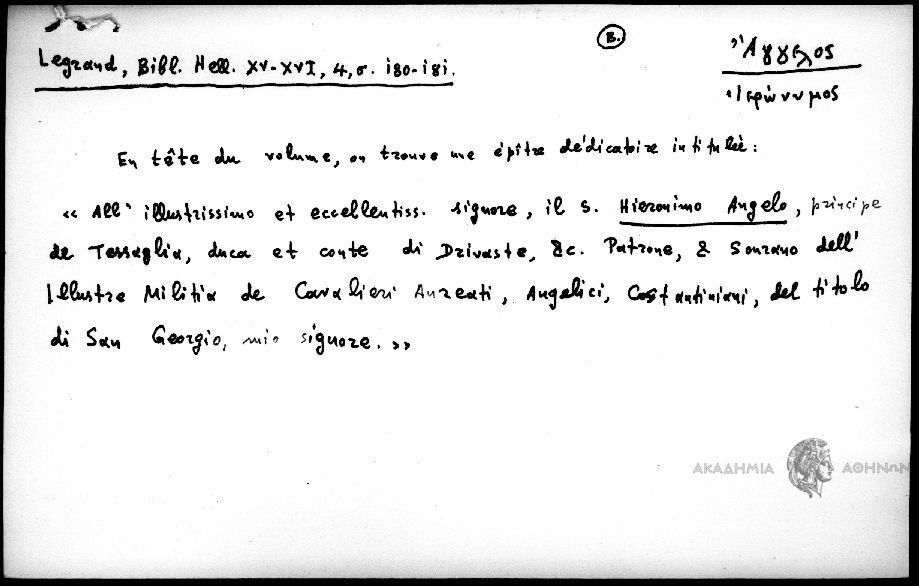 B.
Legrand, Bibl. Hell. XV-XVI, 4, σ. 180-181.
Ἄγγελος
Ἱερώνυμος
En tête du volume, on trouve une épître dédicatoire intitulée :
« All' illustrissimo et eccellentiss. signore, il S. Hieronimo Angelo, principe
de Tessaglia, duca et conte di Drivaste, &c. Patrone, & Sourano dell'
Illustre Militia de Cavalieri Aureati, Angelici, Costantiniani, del titolo
di San Georgio, mio signore. »
ΑΚΑΔΗΜΙΑ ΑΘΗΝΩΝ